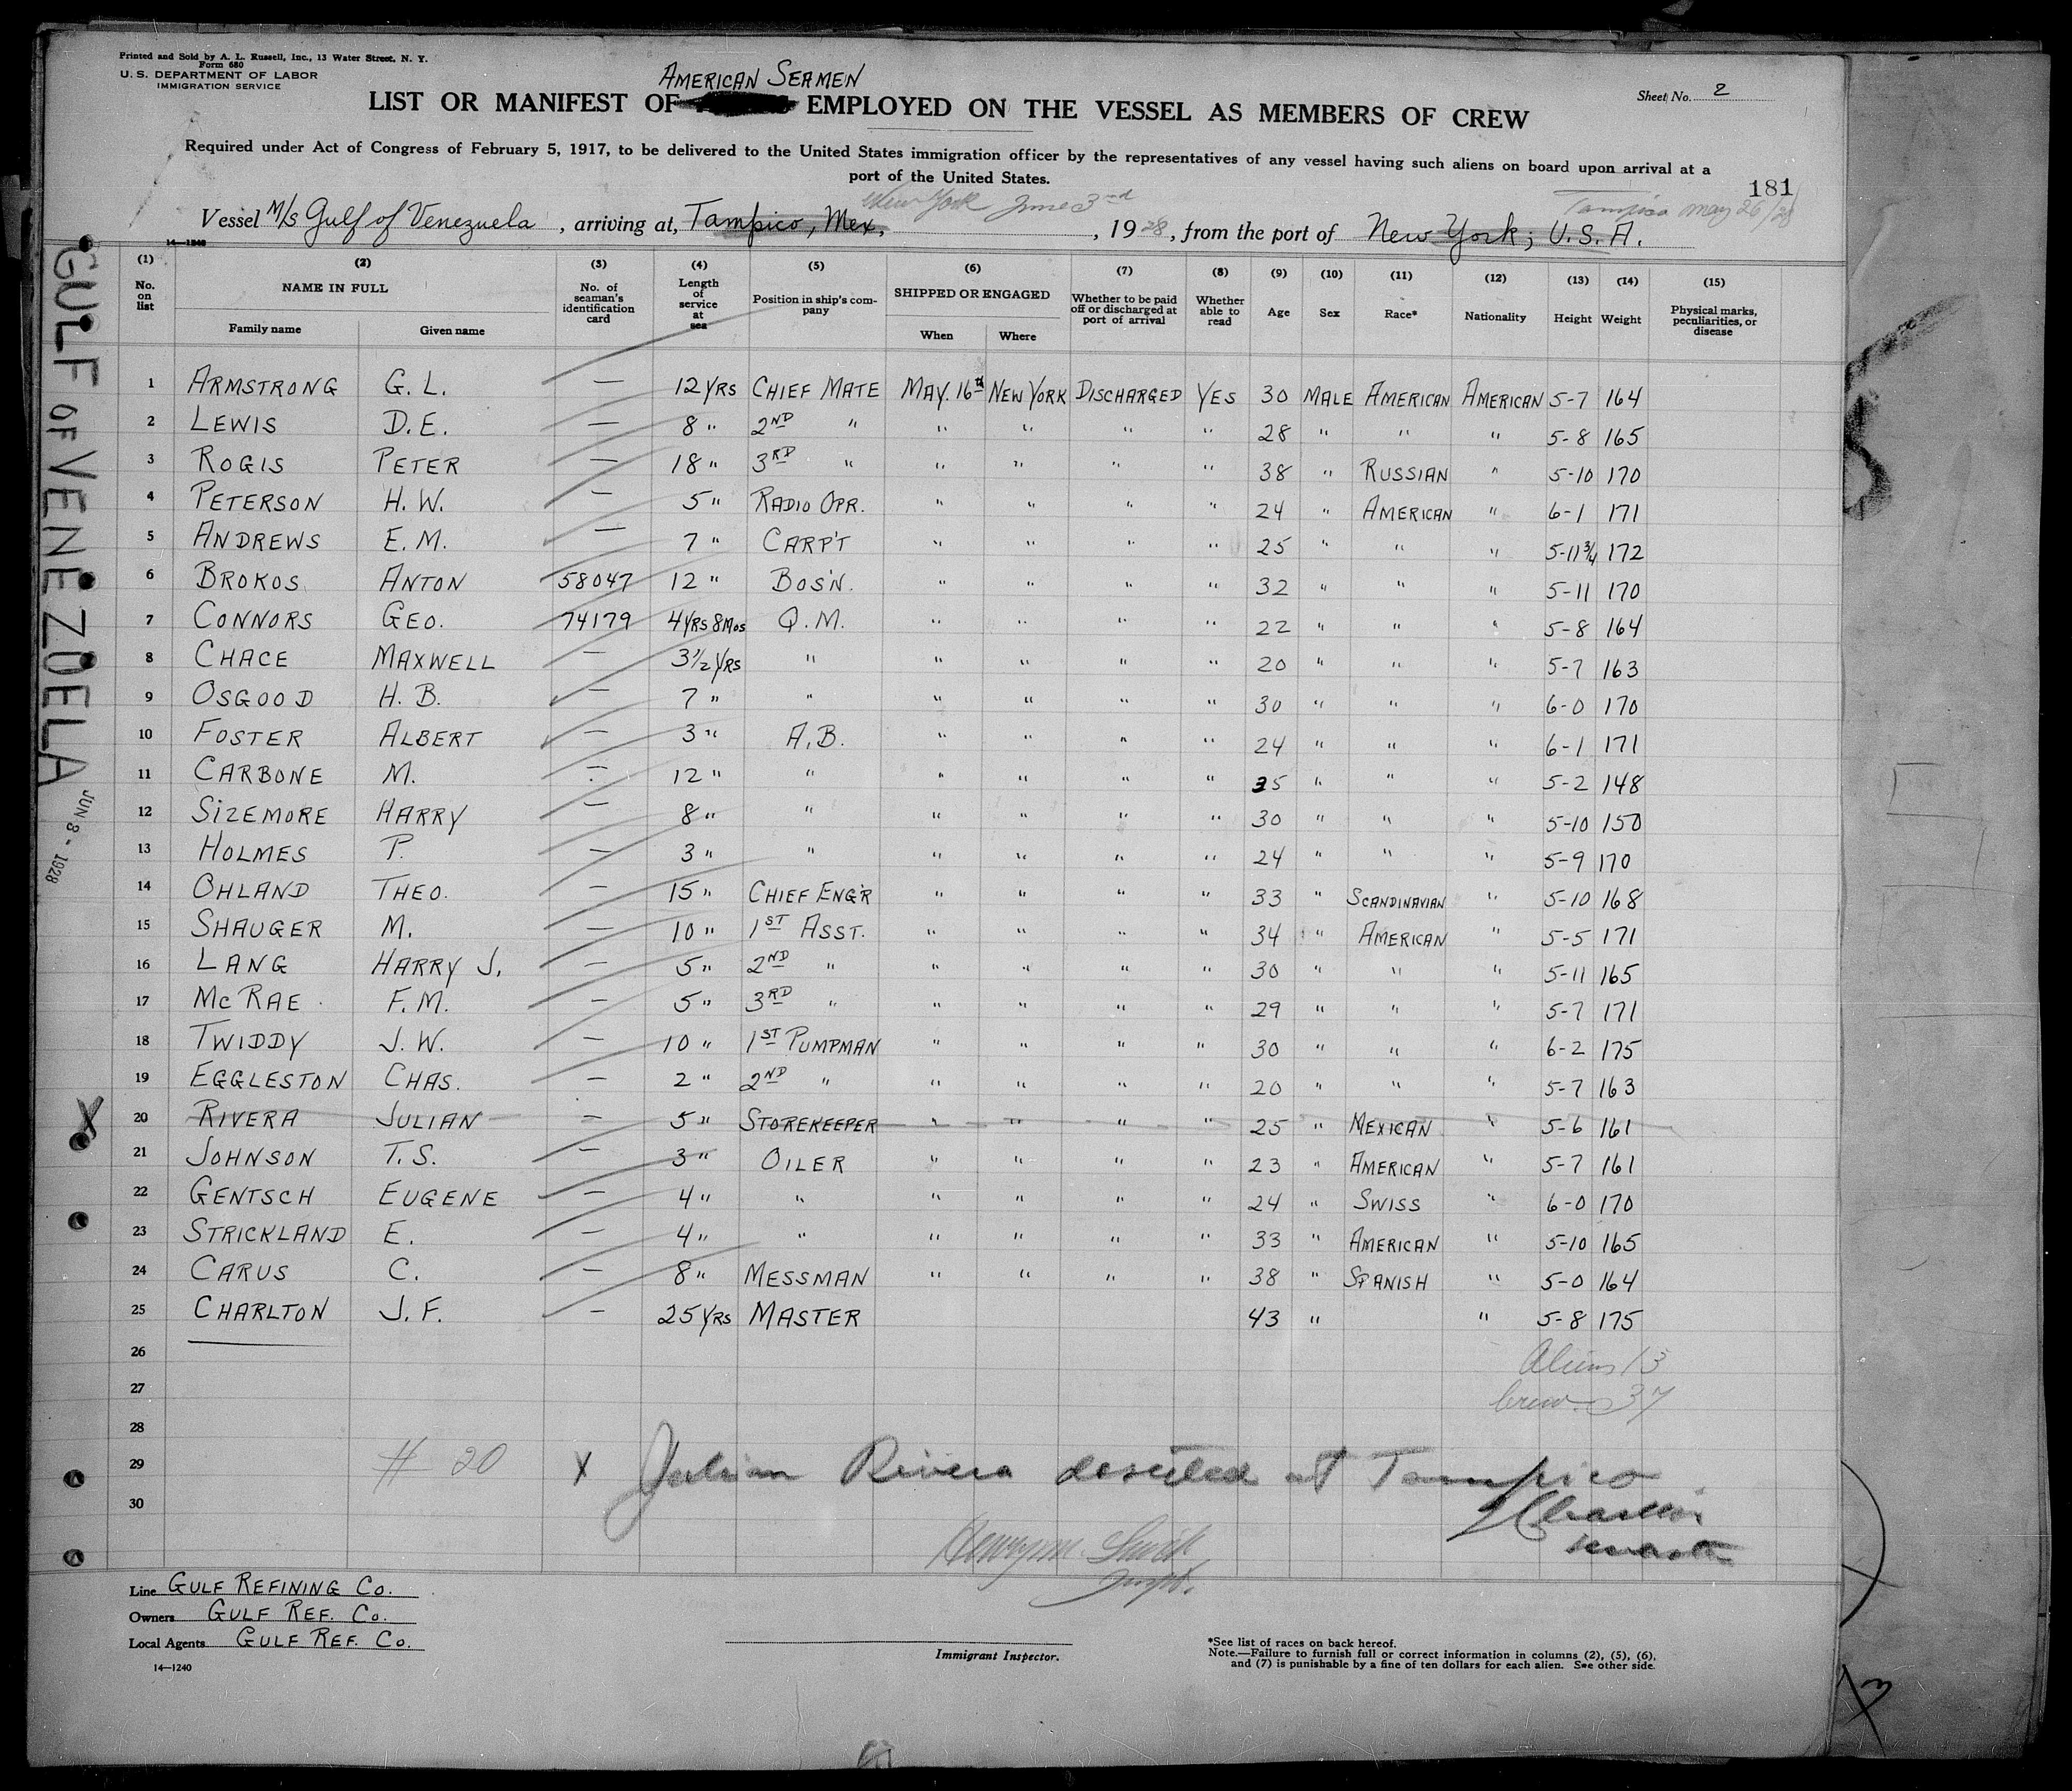 Printed and Sold by A. L. Russell, Inc., 13 Water Street, N. Y.
Form 680
U. S. DEPARTMENT OF LABOR
IMMIGRATION SERVICE
AMERICAN SEAMEN
LIST OR MANIFEST OF EMPLOYED ON THE VESSEL AS MEMBERS OF CREW
Sheet No. 2
Required under Act of Congress of February 5, 1917, to be delivered to the United States immigration officer by the representatives of any vessel having such aliens on board upon arrival at a
port of the United States.
181
New York June 3rd
Tampico May 26/28
Vessel M/S Gulf of Venezuela, arriving at, Tampico, Mex., 1928, from the port of New York; U.S.A.
14—1240
(1) (2) (3) (4) (5) (6) (7) (8) (9) (10) (11) (12) (13) (14) (15)
No. on list NAME IN FULL Family name Given name No. of seaman's identification card Length of service at sea Position in ship's company SHIPPED OR ENGAGED When Where Whether to be paid off or discharged at port of arrival Whether able to read Age Sex Race* Nationality Height Weight Physical marks, peculiarities, or disease
1 ARMSTRONG G. L. — 12 YRS CHIEF MATE MAY. 16th NEW YORK DISCHARGED YES 30 MALE AMERICAN AMERICAN 5-7 164
2 LEWIS D. E. — 8 " 2ND " " " " " 28 " " " 5-8 165
3 ROGIS PETER — 18 " 3RD " " " " " 38 " RUSSIAN " 5-10 170
4 PETERSON H. W. — 5 " RADIO OPR. " " " " 24 " AMERICAN " 6-1 171
5 ANDREWS E. M. — 7 " CARP'T " " " " 25 " " " 5-11 3/4 172
6 BROKOS ANTON 58047 12 " BOS'N. " " " " 32 " " " 5-11 170
7 CONNORS GEO. 74179 4 YRS 8 MOS Q. M. " " " " 22 " " " 5-8 164
8 CHACE MAXWELL — 3 1/2 YRS " " " " " 20 " " " 5-7 163
9 OSGOOD H. B. — 7 " " " " " " 30 " " " 6-0 170
10 FOSTER ALBERT — 3 " A. B. " " " " 24 " " " 6-1 171
11 CARBONE M. — 12 " " " " " " 35 " " " 5-2 148
12 SIZEMORE HARRY — 8 " " " " " " 30 " " " 5-10 150
13 HOLMES P. — 3 " " " " " " 24 " " " 5-9 170
14 OHLAND THEO. — 15 " CHIEF ENG'R " " " " 33 " SCANDINAVIAN " 5-10 168
15 SHAUGER M. — 10 " 1ST ASST. " " " " 34 " AMERICAN " 5-5 171
16 LANG HARRY J. — 5 " 2ND " " " " " 30 " " " 5-11 165
17 McRAE F. M. — 5 " 3RD " " " " " 29 " " " 5-7 171
18 TWIDDY J. W. — 10 " 1ST PUMPMAN " " " " 30 " " " 6-2 175
19 EGGLESTON CHAS. — 2 " 2ND " " " " " 20 " " " 5-7 163
X 20 RIVERA JULIAN — 5 " STOREKEEPER " " " " 25 " MEXICAN " 5-6 161
21 JOHNSON T. S. — 3 " OILER " " " " 23 " AMERICAN " 5-7 161
22 GENTSCH EUGENE — 4 " " " " " " 24 " SWISS " 6-0 170
23 STRICKLAND E. — 4 " " " " " " 33 " AMERICAN " 5-10 165
24 CARUS C. — 8 " MESSMAN " " " " 38 " SPANISH " 5-0 164
25 CHARLTON J. F. — 25 YRS MASTER 43 " " 5-8 175
26 Aliens 13
27 Crew 37
28
29 # 20 X Julian Rivera deserted at Tampico
30 J Charlton
master
Henry M. Smith
Inspt.
Line GULF REFINING CO.
Owners GULF REF. CO.
Local Agents GULF REF. CO.
14—1240
Immigrant Inspector.
*See list of races on back hereof.
Note.—Failure to furnish full or correct information in columns (2), (5), (6),
and (7) is punishable by a fine of ten dollars for each alien. See other side.
GULF OF VENEZOELA
JUN 8 - 1928